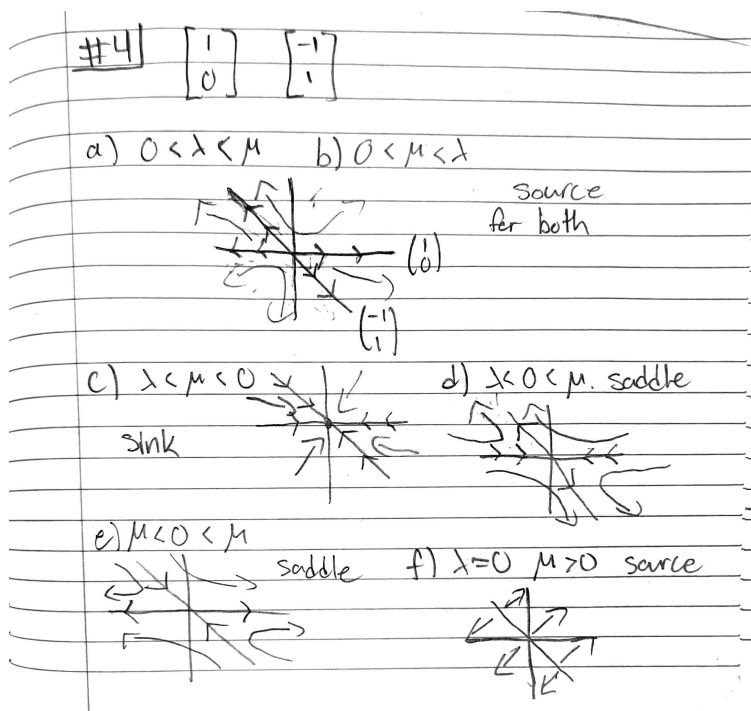 #4 [1 0] [-1 1]
a) 0 < λ < μ b) 0 < μ < λ
source
for both
(1 0)
(-1 1)
c) λ < μ < 0 d) λ < 0 < μ. saddle
sink
e) μ < 0 < μ
saddle f) λ = 0 μ > 0 source